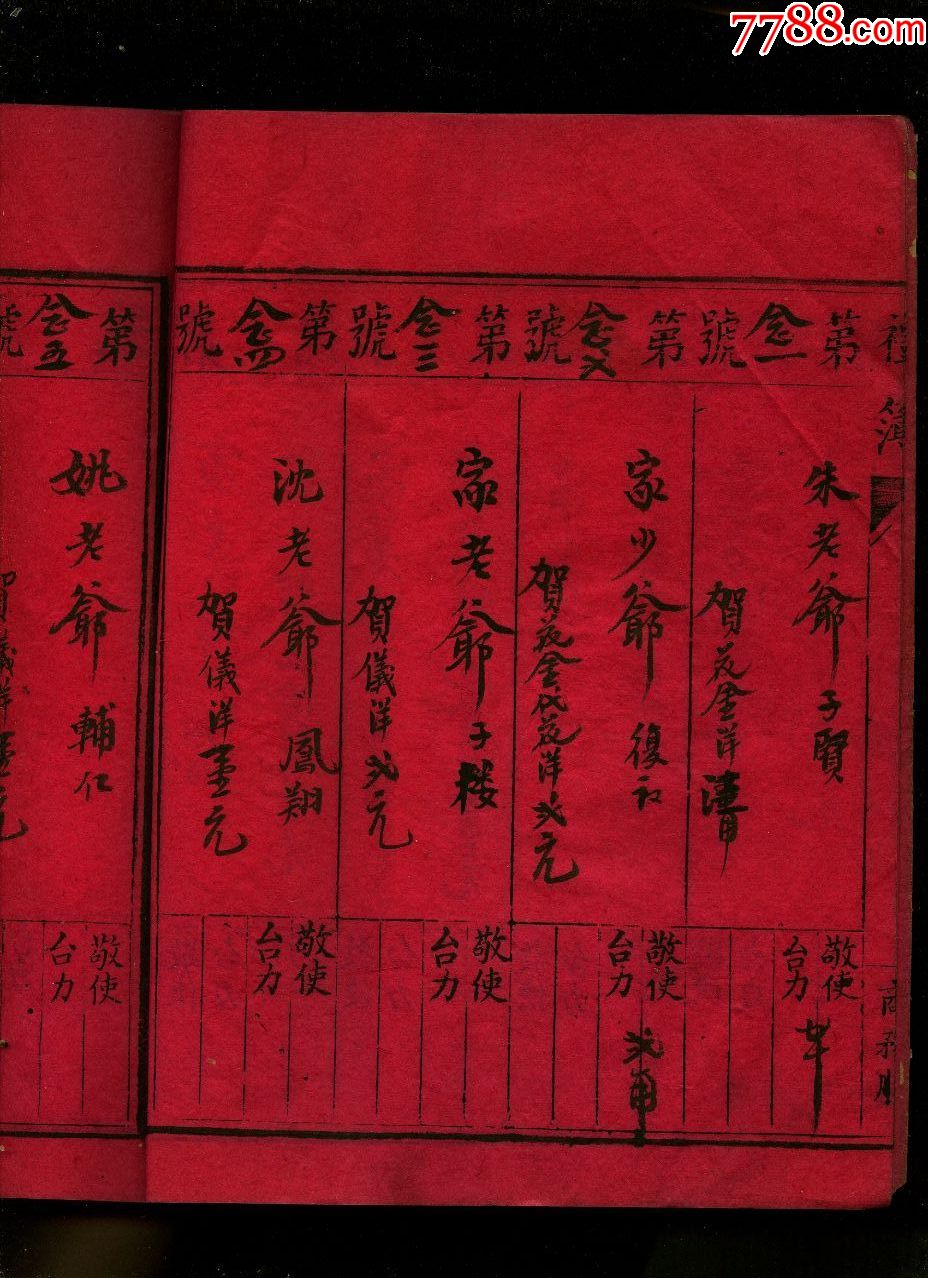 7788.com
禮簿
商務
第念一號
朱老爺子賢
賀花金洋
敬使
台力
第念弍號
家少爺復初
賀花金代花洋弍元
敬使
台力
弍角
第念三號
家老爺子楼
賀儀洋弍元
敬使
台力
第念四號
沈老爺鳳翔
賀儀洋壹元
敬使
台力
第念五號
姚老爺輔仁
賀儀洋壹元
敬使
台力